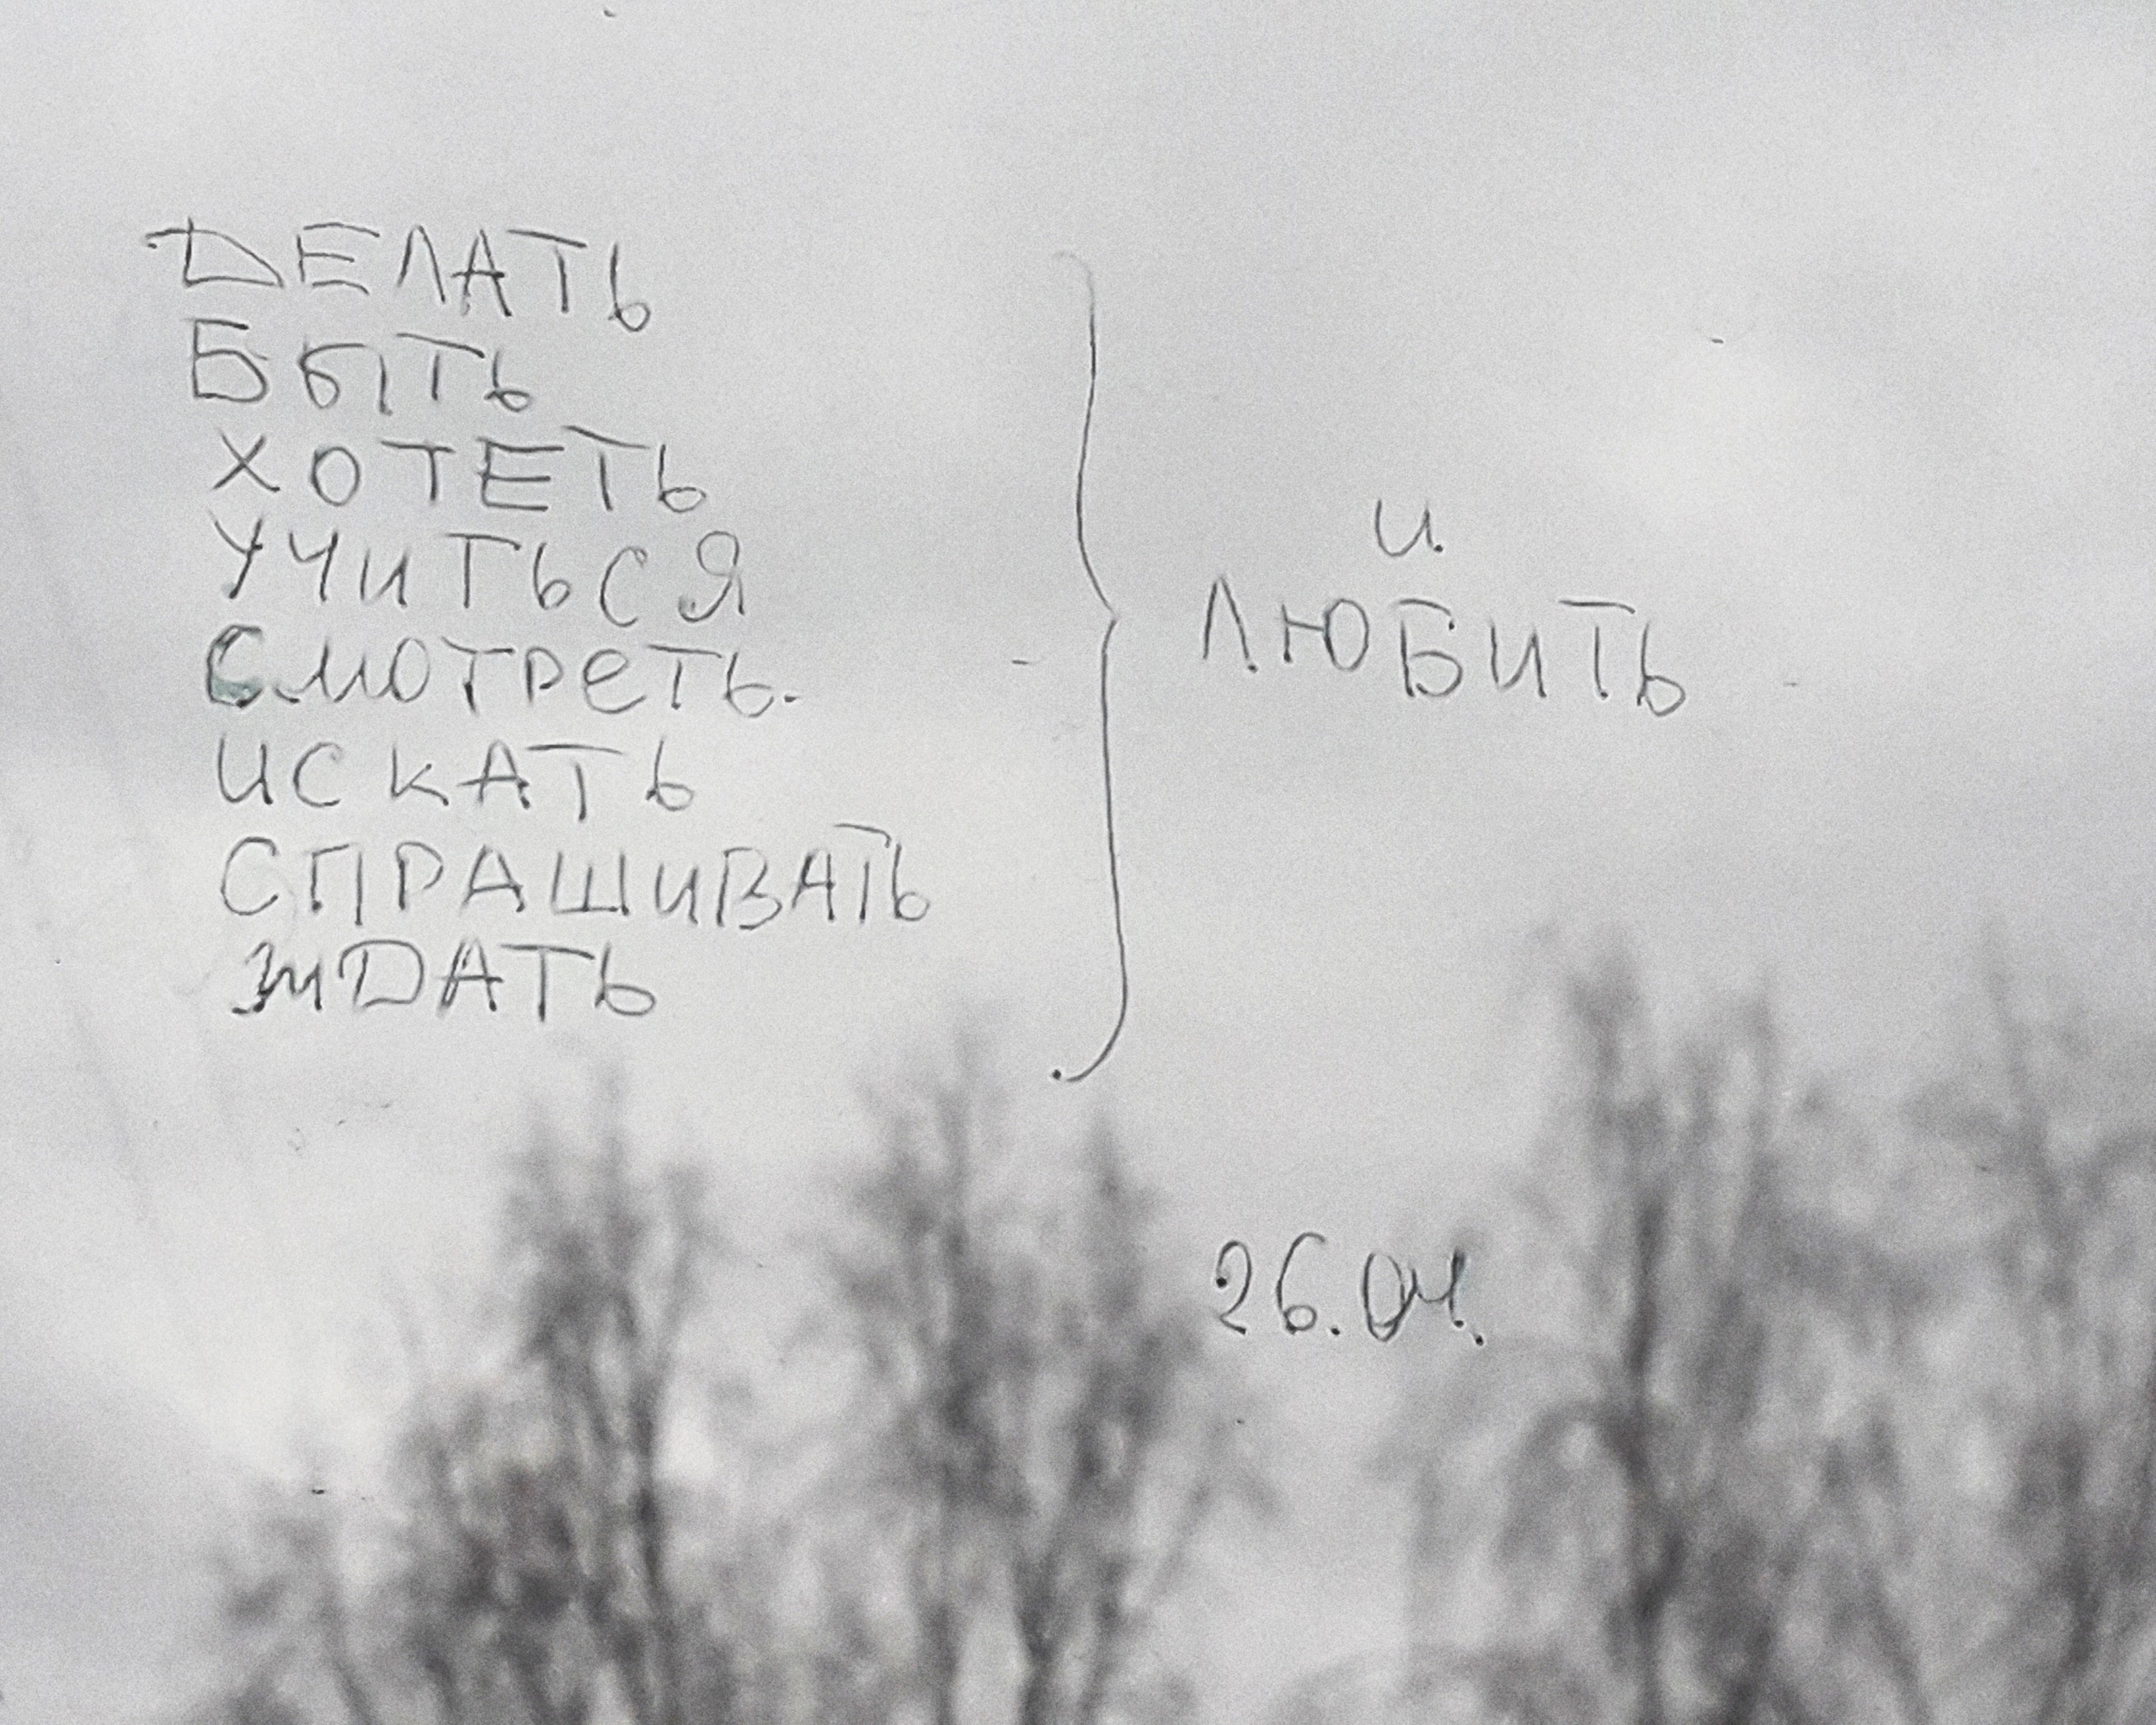 ДЕЛАТЬ
БЫТЬ
ХОТЕТЬ
УЧИТЬСЯ
СМОТРЕТЬ.
ИСКАТЬ
СПРАШИВАТЬ
ЖДАТЬ
и
ЛЮБИТЬ
26.04.